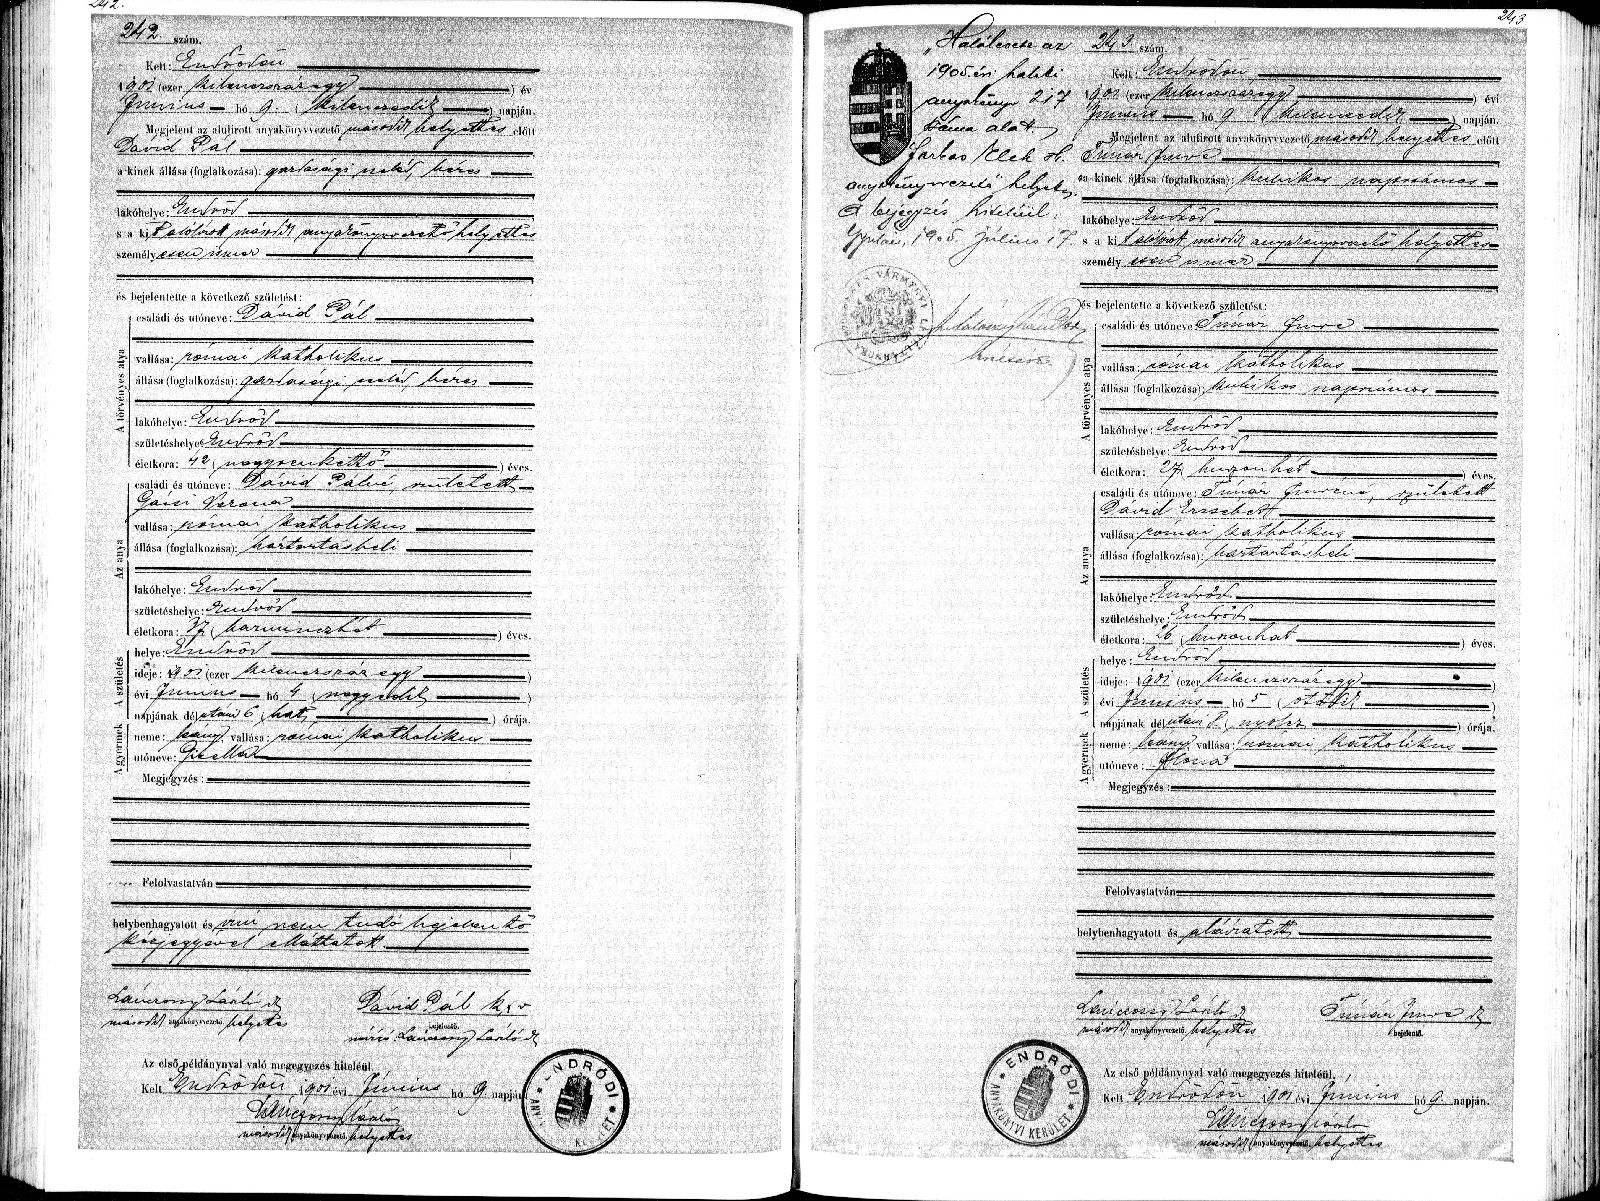 242.
242 szám.
Kelt: Endrődön
1901 (ezer kilenczszáz egy) év
Június hó 9. (kilenczedik) napján.
Megjelent az alulirott anyakönyvvezető második helyettes előtt
Dávid Pál
a kinek állása (foglalkozása): gazdasági cseléd, béres
lakóhelye: Endrőd
s a kit alólírott második anyakönyvvezető helyettes
személyesen ismer
és bejelentette a következő születést:
A törvényes atya
családi és utóneve: Dávid Pál
vallása: római katholikus
állása (foglalkozása): gazdasági cseléd, béres
lakóhelye: Endrőd
születéshelye: Endrőd
életkora: 42 (negyvenkettő) éves.
Az anya
családi és utóneve: Dávid Pálné, született
Verona
vallása: római katholikus
állása (foglalkozása): háztartásbeli
lakóhelye: Endrőd
születéshelye: Endrőd
életkora: 37 (harminczhét) éves.
A születés
helye: Endrőd
ideje: 1901 (ezer kilenczszáz egy)
évi Június hó 4 (negyedik)
napjának délután 6 (hat) órája.
A gyermek
neme: leány, vallása: római katholikus
utóneve: Gizella
Megjegyzés:
Felolvastatván
helybenhagyatott és írni nem tudó bejelentő
kézjegyével elláttatott
Lánczony László sk
második anyakönyvvezető helyettes
Dávid Pál k x v
bejelentő.
névíró: Lánczony László sk
Az első példánynyal való megegyezés hiteléül.
Kelt Endrődön 1901 évi Június hó 9. napján
Lánczony László
második anyakönyvvezető helyettes
ENDRŐDI
ANYAKÖNYVI KERÜLET
243
„Halálesete az
1905. évi haláki
anyakönyv 217
száma alatt
Farkas Elek sk.
anyakönyvvezető helyettes
A bejegyzés hiteléül:
Gyulán, 1905. július 17.
243 szám.
Kelt: Endrődön
1901 (ezer kilenczszáz egy) évi
Június hó 9 (kilenczedik) napján.
Megjelent az alulirott anyakönyvvezető második helyettes előtt
Tímár Imre
a kinek állása (foglalkozása): kubikos napszámos
lakóhelye: Endrőd
s a kit alólírott második anyakönyvvezető helyettes
személyesen ismer
és bejelentette a következő születést:
A törvényes atya
családi és utóneve: Tímár Imre
vallása: római katholikus
állása (foglalkozása): kubikos napszámos
lakóhelye: Endrőd
születéshelye: Endrőd
életkora: 27 (huszonhét) éves.
Az anya
családi és utóneve: Tímár Imréné, született
Dávid Erzsébet
vallása: római katholikus
állása (foglalkozása): háztartásbeli
lakóhelye: Endrőd
születéshelye: Endrőd
életkora: 26 (huszonhat) éves.
A születés
helye: Endrőd
ideje: 1901 (ezer kilenczszáz egy)
évi Június hó 5 (ötödik)
napjának délután 8 (nyolcz) órája.
A gyermek
neme: leány vallása: római katholikus
utóneve: Ilona
Megjegyzés:
Felolvastatván
helybenhagyatott és aláíratott
Lánczony László sk
második anyakönyvvezető helyettes
Tímár Imre sk
bejelentő.
Az első példánynyal való megegyezés hiteléül.
Kelt Endrődön 1901 évi Június hó 9 napján.
Lánczony László
második anyakönyvvezető helyettes
ENDRŐDI
ANYAKÖNYVI KERÜLET